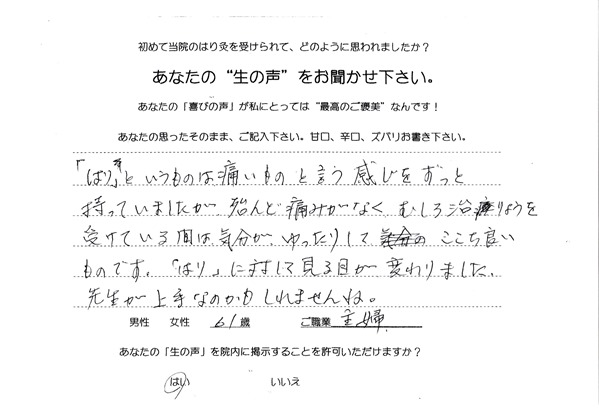 初めて当院のはり灸を受けられて、どのように思われましたか？
あなたの“生の声”をお聞かせ下さい。
あなたの「喜びの声」が私にとっては“最高のご褒美”なんです！
あなたの思ったそのまま、ご記入下さい。甘口、辛口、ズバリお書き下さい。
「はり」というものは痛いものと言う感じをずっと
持っていましたが、殆んど痛みがなくむしろ治りょうを
受けている間は気分が、ゆったりしてここち良い
ものです。「はり」に対して見る目が変わりました。
先生が上手なのかもしれませんね。
男性 女性 61歳 ご職業 主婦
あなたの「生の声」を院内に掲示することを許可いただけますか？
はい いいえ